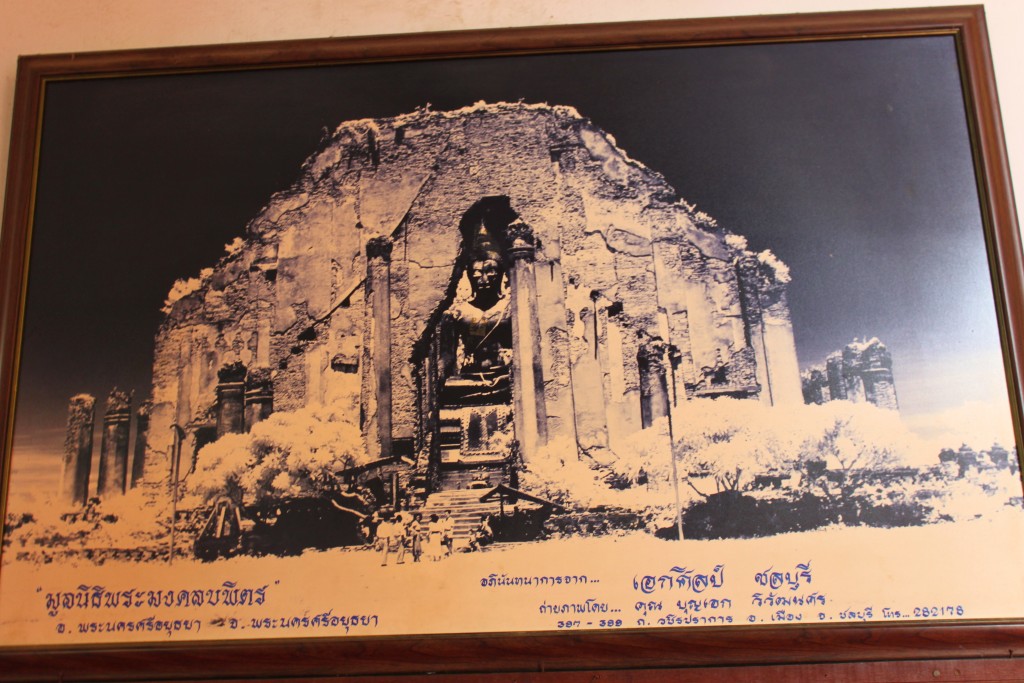 "มูลนิธิพระมงคลบพิตร"
อ. พระนครศรีอยุธยา จ. พระนครศรีอยุธยา
อภินันทนาการจาก... เอกศิลป์ ชลบุรี
ถ่ายภาพโดย... คุณ บุญเอก
397 - 399 ถ. วชิรปราการ อ. เมือง จ. ชลบุรี โทร... 282178